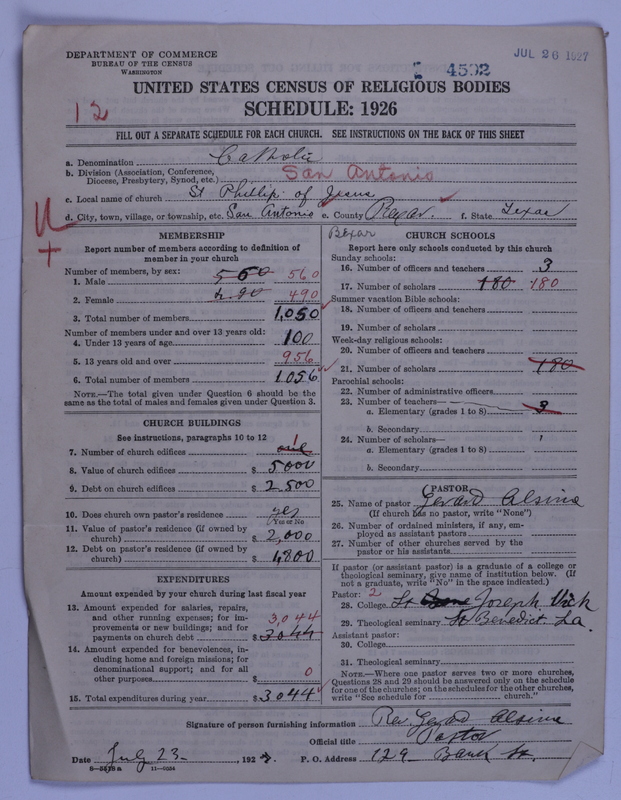 DEPARTMENT OF COMMERCE
BUREAU OF THE CENSUS
WASHINGTON
4592
JUL 26 1927
UNITED STATES CENSUS OF RELIGIOUS BODIES
SCHEDULE: 1926
12
FILL OUT A SEPARATE SCHEDULE FOR EACH CHURCH. SEE INSTRUCTIONS ON THE BACK OF THIS SHEET
a. Denomination Catholic
b. Division (Association, Conference, Diocese, Presbytery, Synod, etc.) San Antonio
c. Local name of church St Phillip of Jesus
d. City, town, village, or township, etc. San Antonio e. County Bexar. f. State Texas
Bexar
MEMBERSHIP
Report number of members according to definition of
member in your church
Number of members, by sex:
1. Male 560 560
2. Female 490
3. Total number of members 1,050
Number of members under and over 13 years old:
4. Under 13 years of age 100
5. 13 years old and over 956
6. Total number of members 1.056
NOTE.—The total given under Question 6 should be
same as the total of males and females given under Question 3.
CHURCH BUILDINGS
See instructions, paragraphs 10 to 12
7. Number of church edifices one 1
8. Value of church edifices $ 5000
9. Debt on church edifices $ 2500
10. Does church own pastor's residence? yes
(Yes or No)
11. Value of pastor's residence (if owned by
church) $ 2,000
12. Debt on pastor's residence (if owned by
church) $ 4800
EXPENDITURES
Amount expended by your church during last fiscal year
13. Amount expended for salaries, repairs,
and other running expenses; for im-
provements or new buildings; and for
payments on church debt $ 3044 3,044
14. Amount expended for benevolences, in-
cluding home and foreign missions; for
denominational support; and for all
other purposes $ 0
15. Total expenditures during year $ 3044
CHURCH SCHOOLS
Report here only schools conducted by this church
Sunday schools:
16. Number of officers and teachers 3
17. Number of scholars 180 180
Summer vacation Bible schools:
18. Number of officers and teachers
19. Number of scholars
Week-day religious schools:
20. Number of officers and teachers
21. Number of scholars 180
Parochial schools:
22. Number of administrative officers
23. Number of teachers—
a. Elementary (grades 1 to 8) 3
b. Secondary
24. Number of scholars—
a. Elementary (grades 1 to 8)
b. Secondary
PASTOR
25. Name of pastor Gerard Alsina
(If church has no pastor, write "None")
26. Number of ordained ministers, if any, em-
ployed as assistant pastors
27. Number of other churches served by the
pastor or his assistants
If pastor (or assistant pastor) is a graduate of a college or
theological seminary, give name of institution below. (If
not a graduate, write "No" in the space indicated.)
Pastor: 2
28. College St Joseph Vich
29. Theological seminary St Benedict La.
Assistant pastor:
30. College
31. Theological seminary
NOTE.—Where one pastor serves two or more churches,
Questions 28 and 29 should be answered only on the schedule
for one of the churches; on the schedules for the other churches,
write "See schedule for church."
Signature of person furnishing information Rev. Gerard Alsina
Official title Pastor
Date July 23 , 192 P. O. Address 129
8—5518 a 11—9034